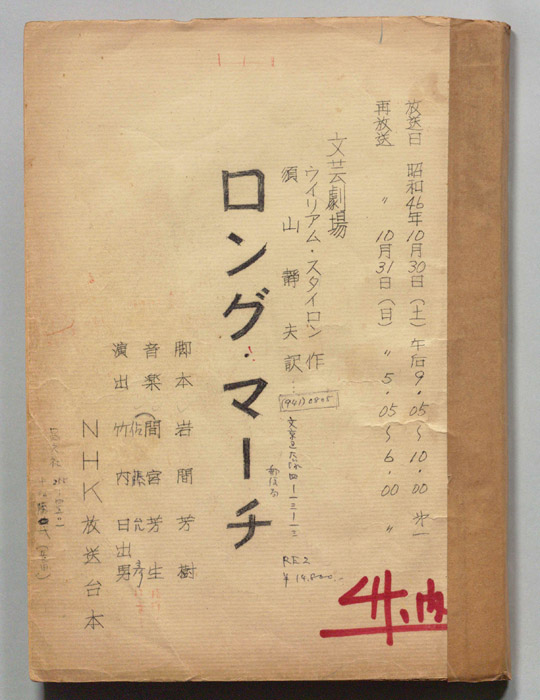 放送日 昭和46年10月30日(土)午后9.05～10.00 第一
再放送 〃 10月31日(日) 〃 5.05～6.00 〃
文芸劇場
ウイリアム・スタイロン 作
須山靜夫 訳
(941)0805
ロング・マーチ
RE2
脚本 岩間芳樹
音楽 間宮芳生
演出 竹内日出男
NHK放送台本